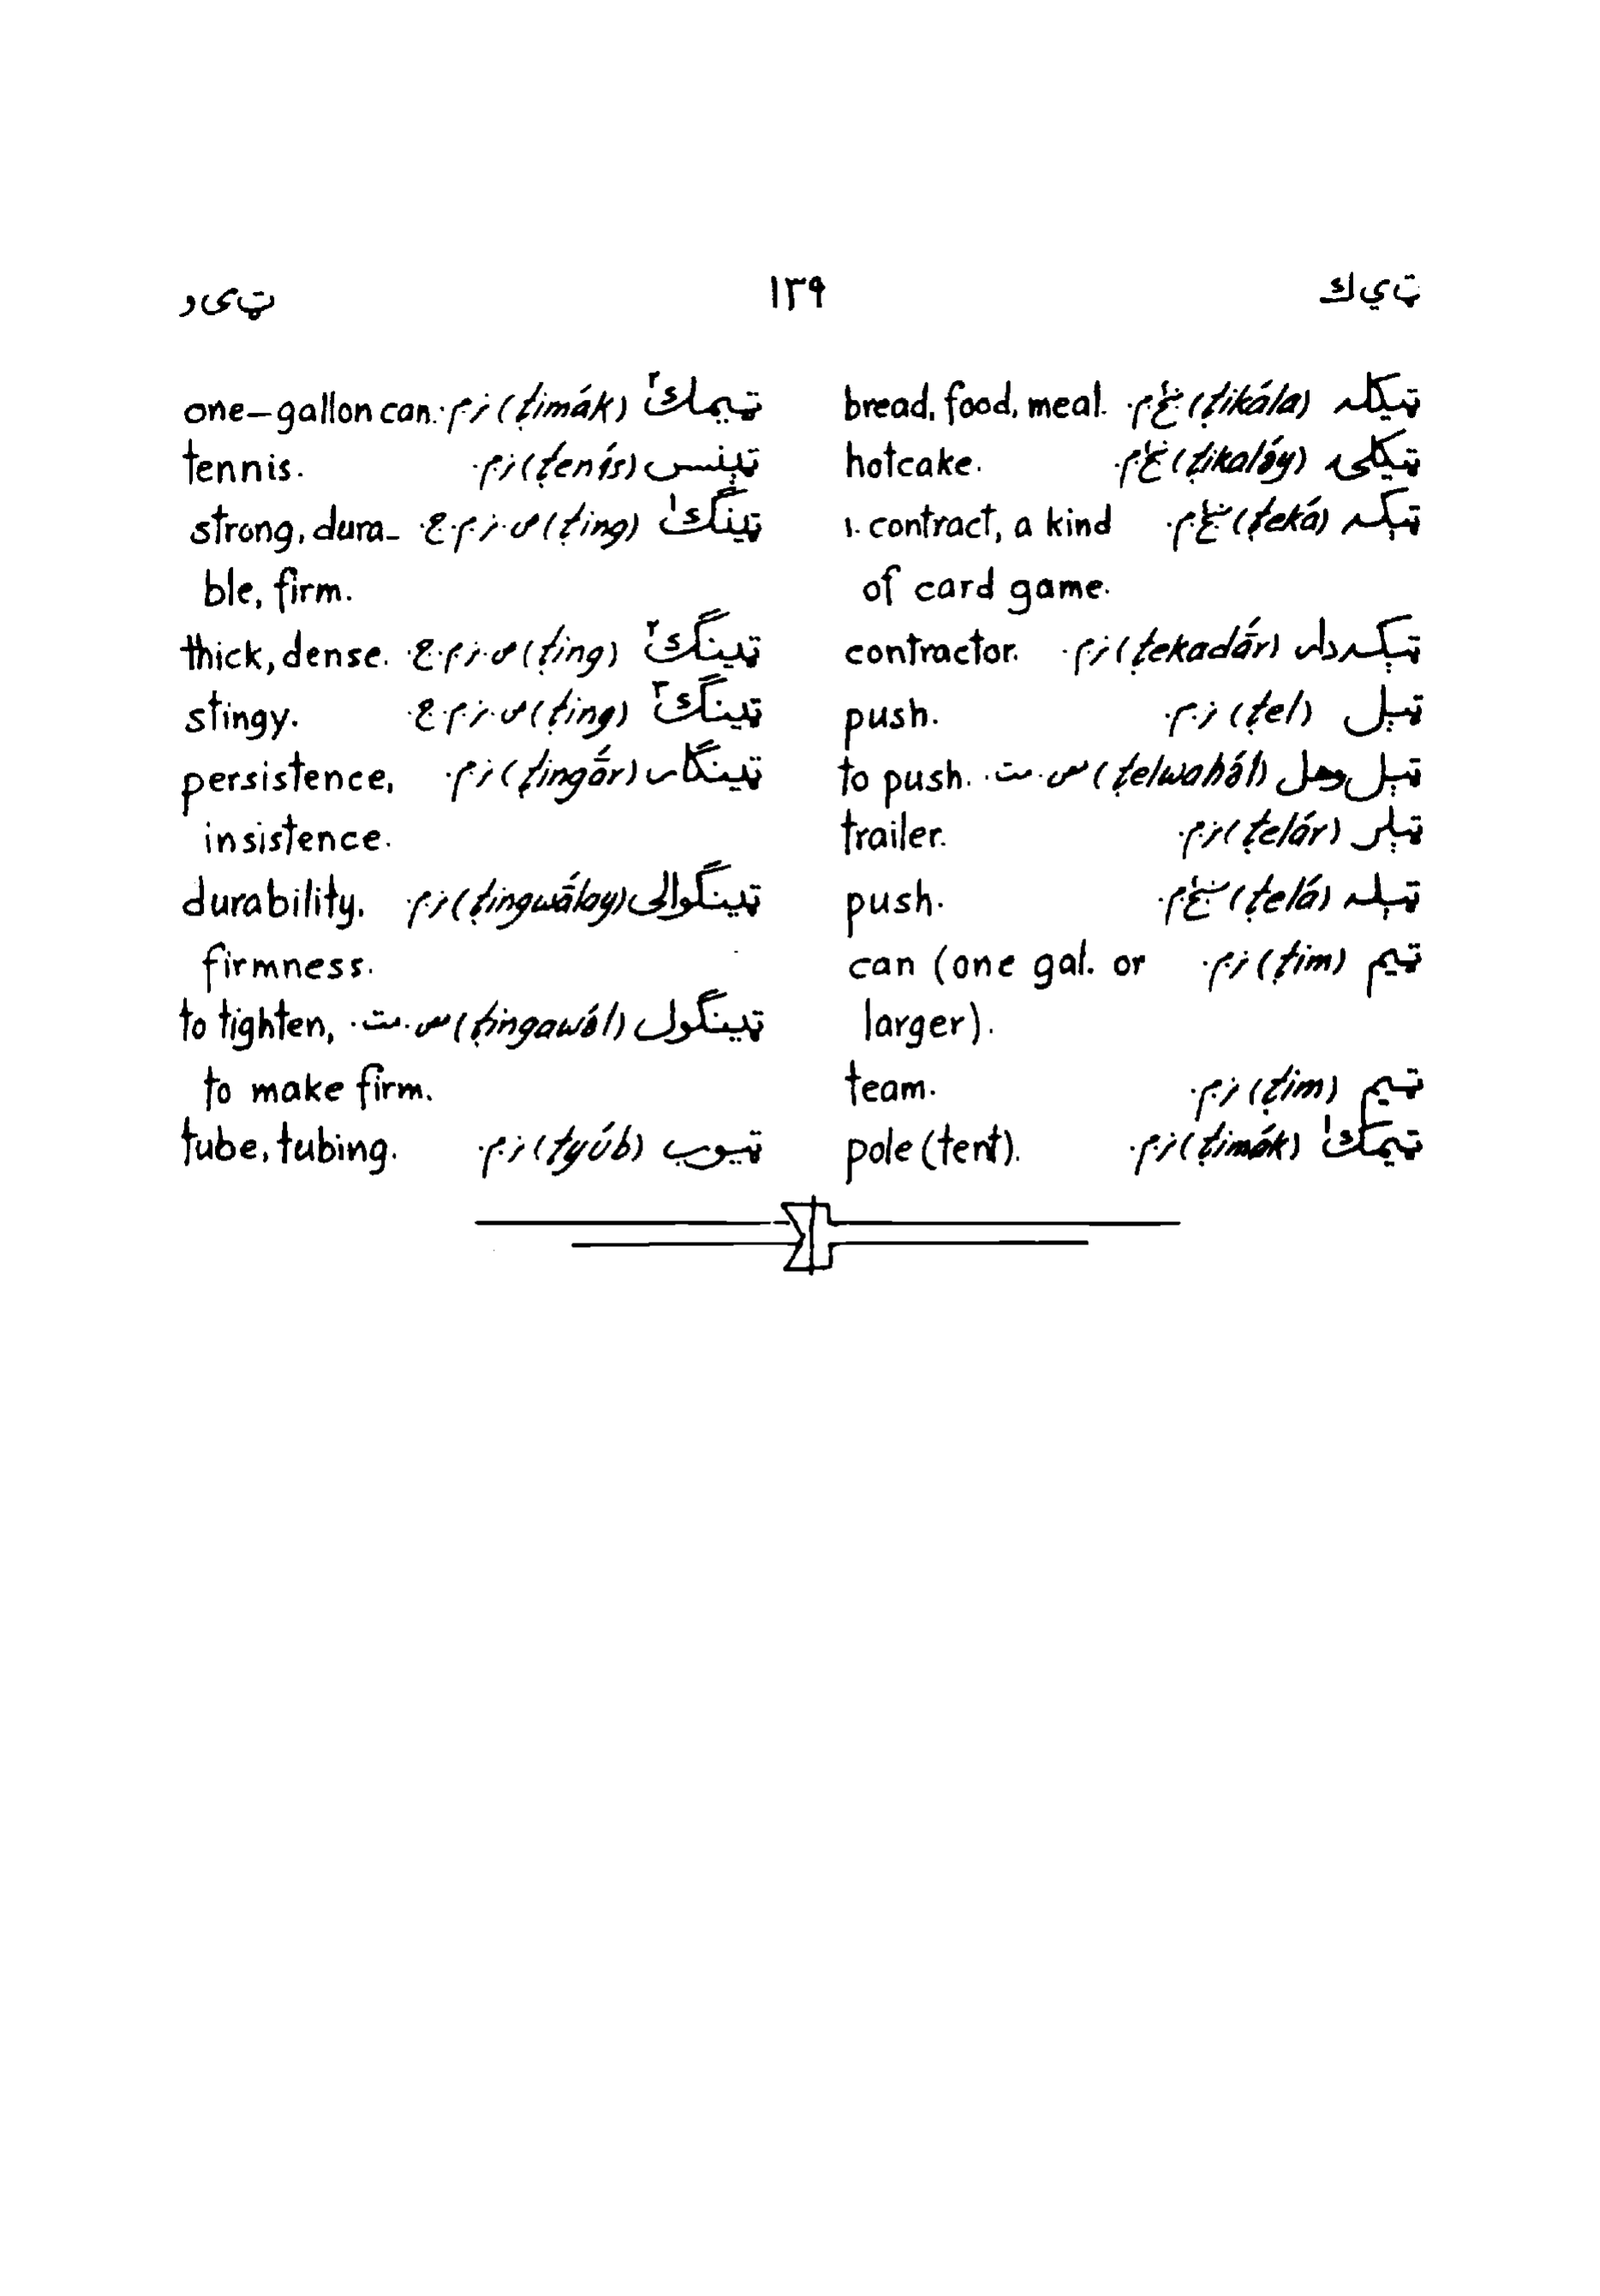 ټيك ١٣٩ ټىو
ټيكله (ṭikála) ښځ.م. bread, food, meal.
ټيكلۍ (ṭikaláy) ښځ.م. hotcake.
ټېكه (ṭeká) ښځ.م. ١. contract, a kind
of card game.
ټېكه‌دار (ṭekadā́r) ز.م. contractor.
ټېل (ṭel) ز.م. push.
ټېل وهل (ṭelwahə́l) س.مت. to push.
ټېلر (ṭelár) ز.م. trailer.
ټېله (ṭelá) ښځ.م. push.
ټيم (ṭim) ز.م. can (one gal. or
larger).
ټيم (ṭim) ز.م. team.
ټيمك١ (ṭimák) ز.م. pole (tent).
ټيمك٢ (ṭimák) ز.م. one-gallon can.
ټېنس (ṭenís) ز.م. tennis.
ټينګ١ (ṭing) ص.ز.م.ج. strong, dura-
ble, firm.
ټينګ٢ (ṭing) ص.ز.م.ج. thick, dense.
ټينګ٣ (ṭing) ص.ز.م.ج. stingy.
ټينګار (ṭingā́r) ز.م. persistence,
insistence.
ټينګوالى (ṭingwā́lay) ز.م. durability,
firmness.
ټينګول (ṭingawə́l) س.مت. to tighten,
to make firm.
ټيوب (ṭyúb) ز.م. tube, tubing.